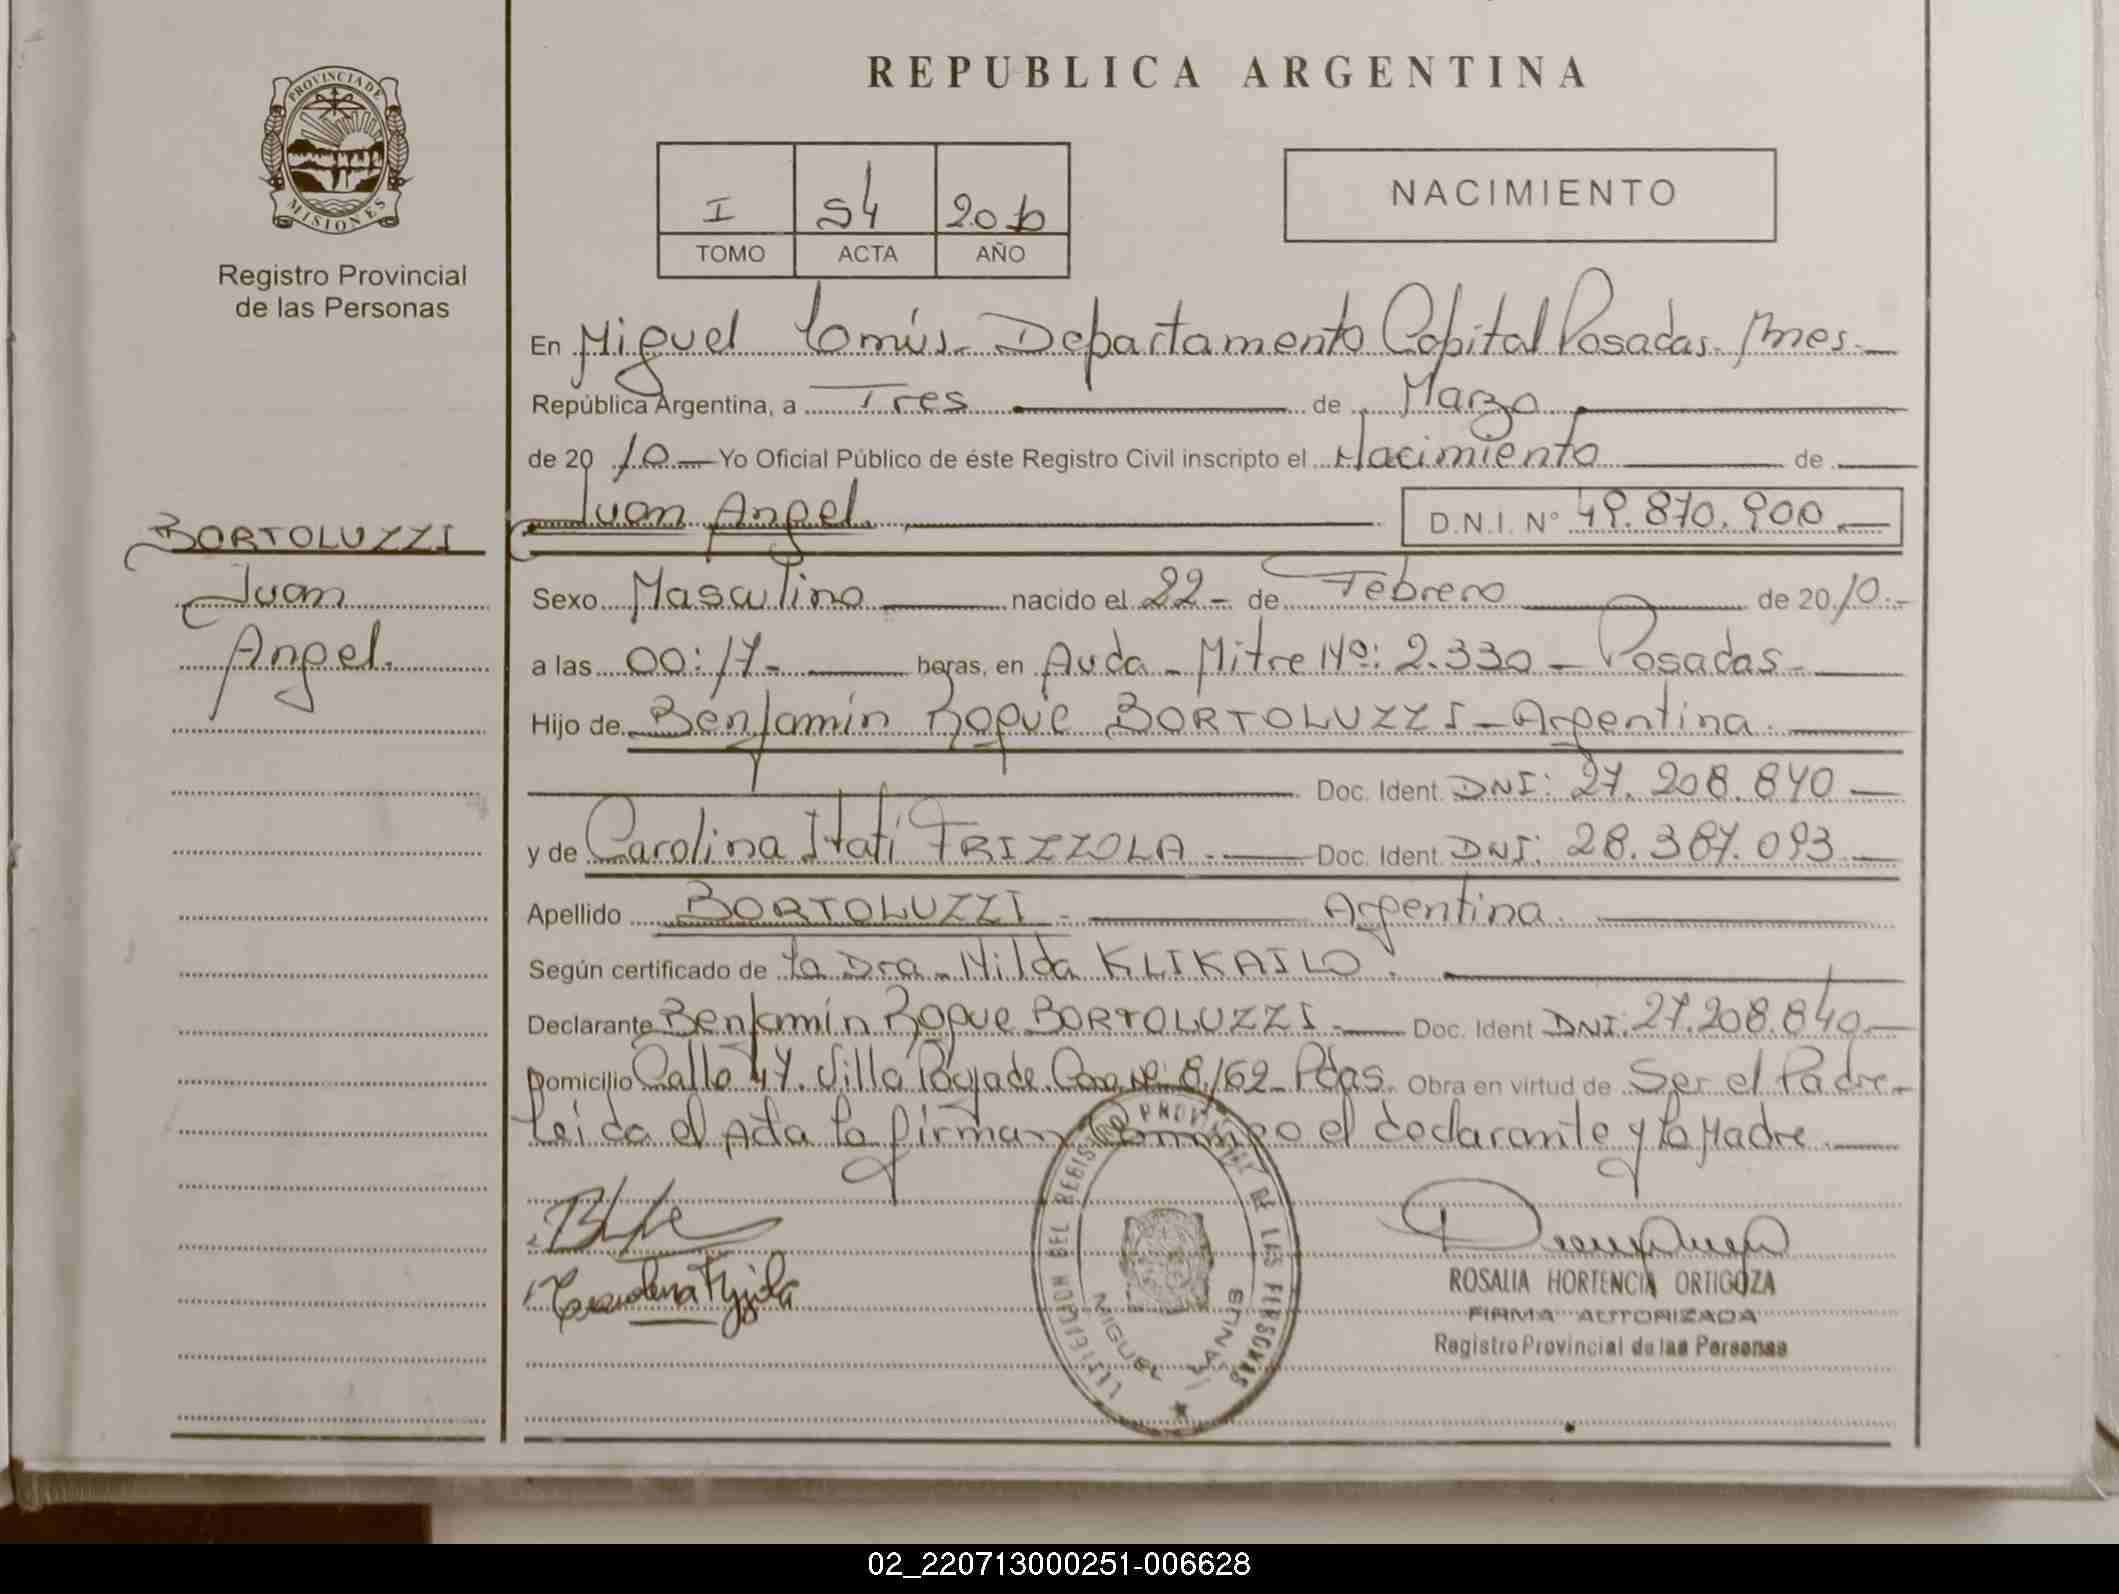 REPUBLICA ARGENTINA
PROVINCIA DE
MISIONES
Registro Provincial
de las Personas
I 54 2010
TOMO ACTA AÑO
NACIMIENTO
En Miguel Lanús - Departamento Capital Posadas - Mnes. -
República Argentina, a Tres de Marzo
de 20 10 - Yo Oficial Público de éste Registro Civil inscripto el Nacimiento de
Juan Angel. D.N.I. N° 49.870.900
BORTOLUZZI
Juan
Angel.
Sexo Masculino nacido el 22 - de Febrero de 20 10.-
a las 00:17 - horas, en Avda - Mitre Nº: 2.330 - Posadas -
Hijo de Benjamín Roque BORTOLUZZI - Argentina.
Doc. Ident. DNI: 27.208.840
y de Carolina Itatí FRIZZOLA - Doc. Ident. DNI: 28.387.093
Apellido BORTOLUZZI - Argentina.
Según certificado de la Dra - Hilda KLIKAILO.
Declarante Benjamín Roque BORTOLUZZI Doc. Ident DNI: 27.208.840
Domicilio Calle 47 Villa Poujade Casa Nº: 8162 - Pdas. Obra en virtud de Ser el Padre -
Leida el Acta la firman Conmigo el declarante y la Madre.
DELEGACION DEL REGISTRO PROVINCIAL DE LAS PERSONAS
MIGUEL LANUS
ROSALIA HORTENCIA ORTIGOZA
FIRMA AUTORIZADA
Registro Provincial de las Personas
02_220713000251-006628